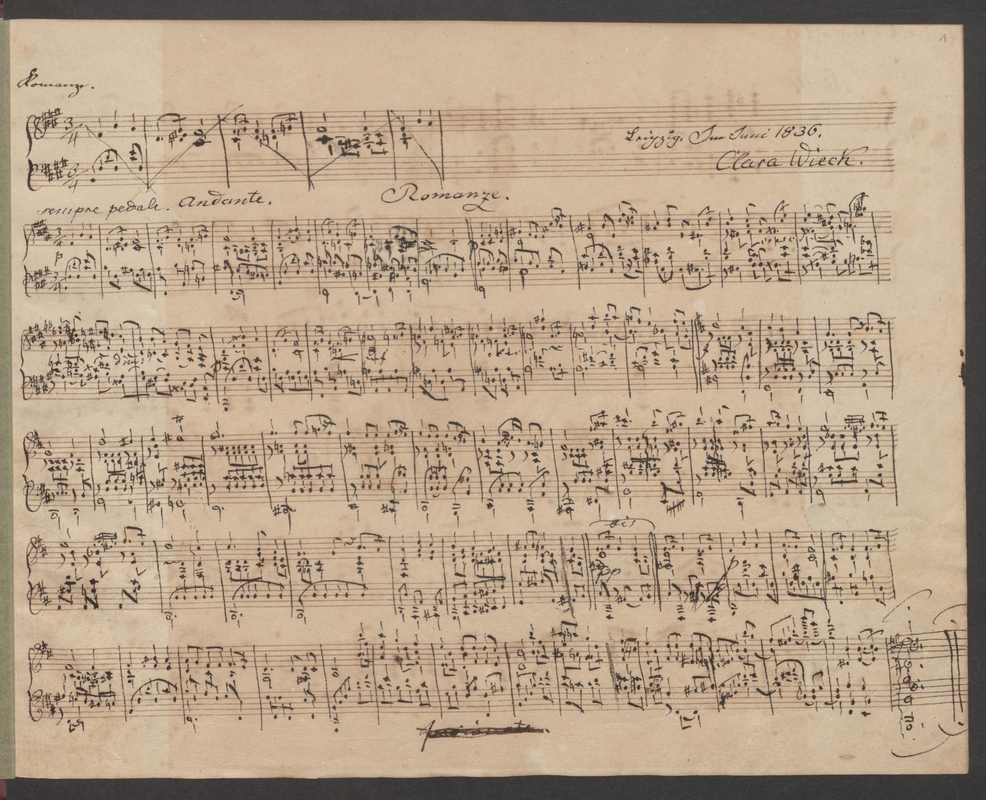 Romanze.
Leipzig. Im Juni 1836.
Clara Wieck.
sempre pedale. Andante. Romanze.